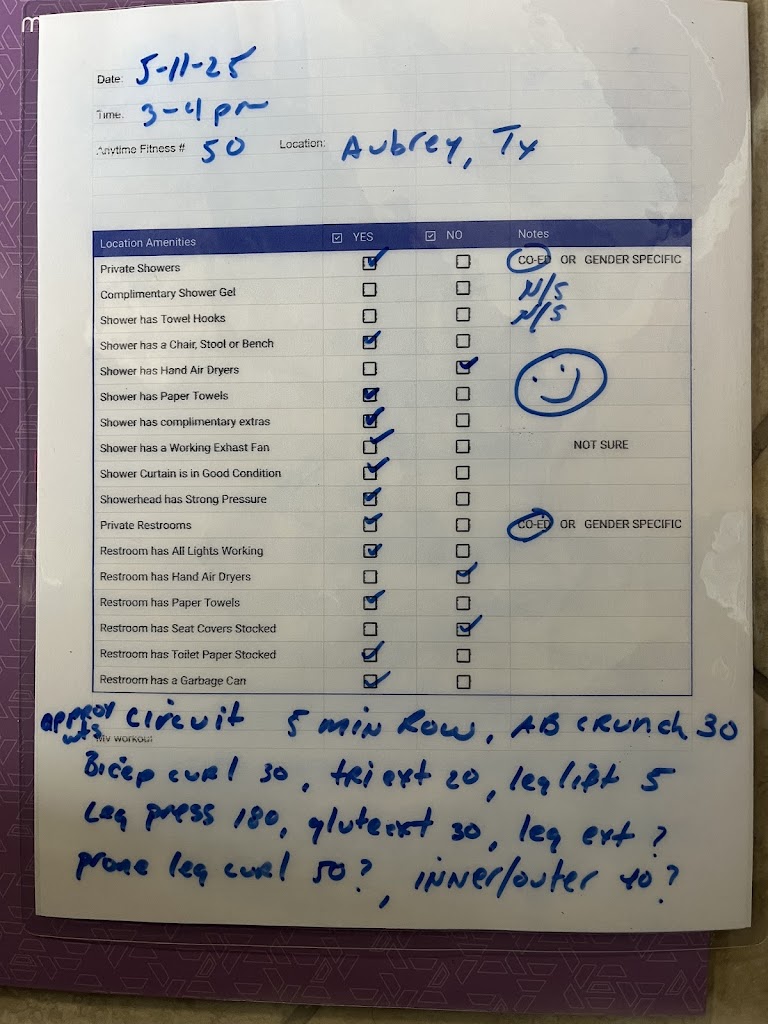 m
Date: 5-11-25
Time: 3-4 pm
Anytime Fitness # 50 Location: Aubrey, Tx
Location Amenities ☑ YES ☑ NO Notes
Private Showers ☑ ☐ CO-ED OR GENDER SPECIFIC
Complimentary Shower Gel ☐ ☐ N/S
Shower has Towel Hooks ☐ ☐ N/S
Shower has a Chair, Stool or Bench ☑ ☐
Shower has Hand Air Dryers ☐ ☑
Shower has Paper Towels ☑ ☐
Shower has complimentary extras ☑ ☐
Shower has a Working Exhast Fan ☑ ☐ NOT SURE
Shower Curtain is in Good Condition ☑ ☐
Showerhead has Strong Pressure ☑ ☐
Private Restrooms ☑ ☐ CO-ED OR GENDER SPECIFIC
Restroom has All Lights Working ☑ ☐
Restroom has Hand Air Dryers ☐ ☑
Restroom has Paper Towels ☑ ☐
Restroom has Seat Covers Stocked ☐ ☑
Restroom has Toilet Paper Stocked ☑ ☐
Restroom has a Garbage Can ☑ ☐
approx wts circuit 5 min Row, AB crunch 30
My workout
Bicep curl 30, tri ext 20, leg lift 5
Leg press 180, glute ext 30, leg ext ?
prone leg curl 50?, inner/outer 40?